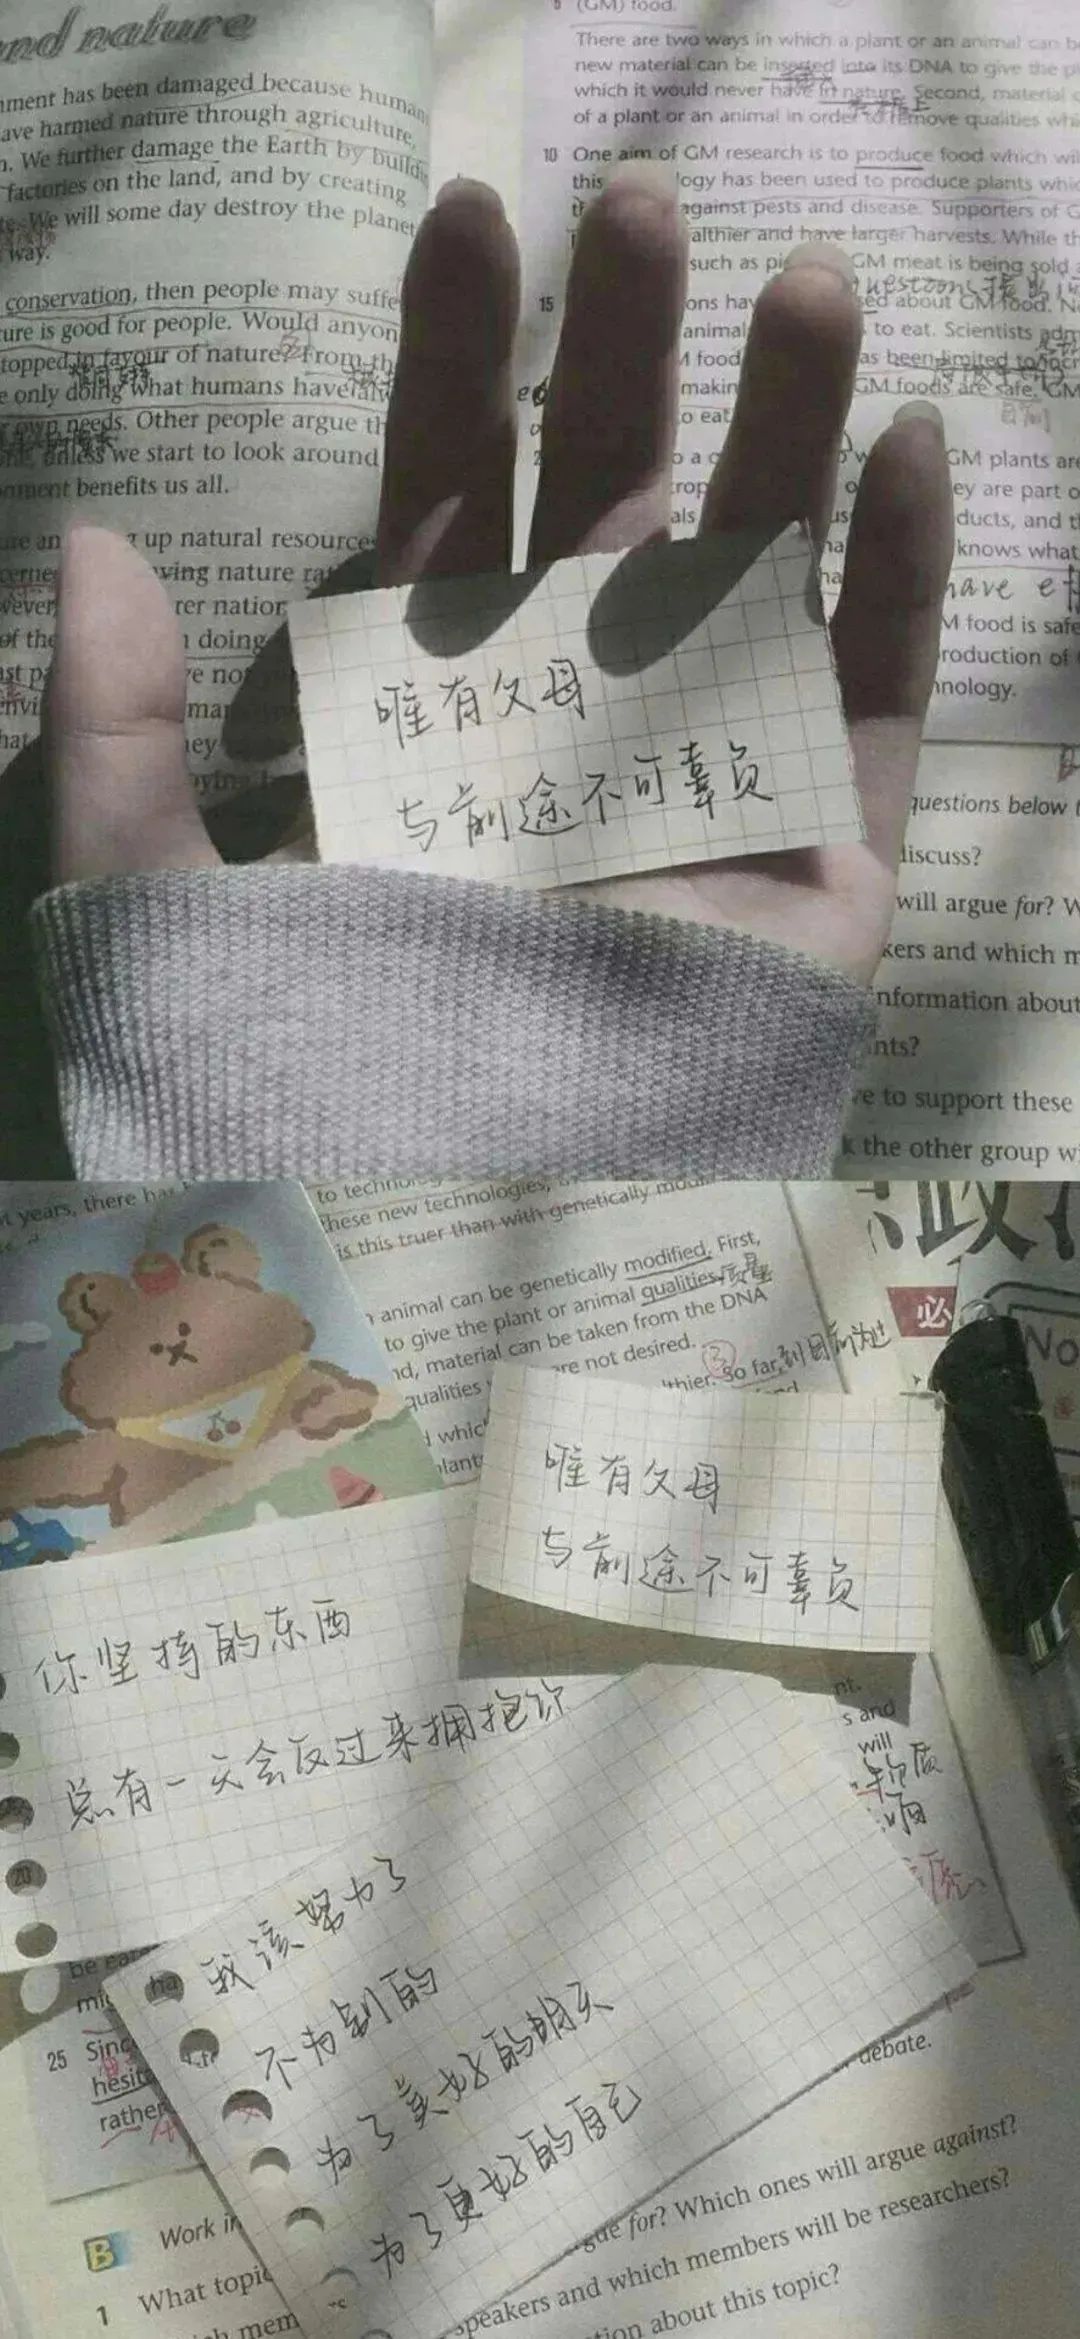 and nature
nment has been damaged because human
ave harmed nature through agriculture,
n. We further damage the Earth by buildin
factories on the land, and by creating
te. We will some day destroy the planet
way.
conservation, then people may suffe
ure is good for people. Would anyon
topped in favour of nature? From th
e only doing what humans have alw
r own needs. Other people argue th
unless we start to look around
onment benefits us all.
up natural resources
ving nature rat
wever,
rer nation
of the
doing
(GM) food.
There are two ways in which a plant or an animal can be
new material can be inserted into its DNA to give the pl
which it would never have in nature. Second, material c
of a plant or an animal in order to remove qualities whi
10 One aim of GM research is to produce food which wil
this
ogy has been used to produce plants whic
against pests and disease. Supporters of G
althier and have larger harvests. While th
such as pi
GM meat is being sold a
questions
15
ons hav
ed about GM food. N
animal
to eat. Scientists adm
food
as been limited to incr
making
GM foods are safe. GM
o eat
GM plants are
ey are part o
ducts, and th
knows what
have
M food is safe
roduction of
nology.
唯有父母
与前途不可辜负
questions below
discuss?
will argue for? W
kers and which m
information about
nts?
ve to support these
k the other group wi
t years, there has
to technolog
these new technologies,
is this truer than with genetically modi
animal can be genetically modified. First,
to give the plant or animal qualities 质量
nd, material can be taken from the DNA
qualities
re not desired.
③
thier. So far, 到目前为止
d which
plants
政
必
No
唯有父母
与前途不可辜负
你坚持的东西
总有一天会反过来拥抱你
nt.
s and
will
20
我该努力了
不为别的
为了美好的明天
为了更好的自己
be ea
25 Sinc
hesit
rather
debate.
B Work in
1 What topic
gue for? Which ones will argue against?
speakers and which members will be researchers?
tion about this topic?